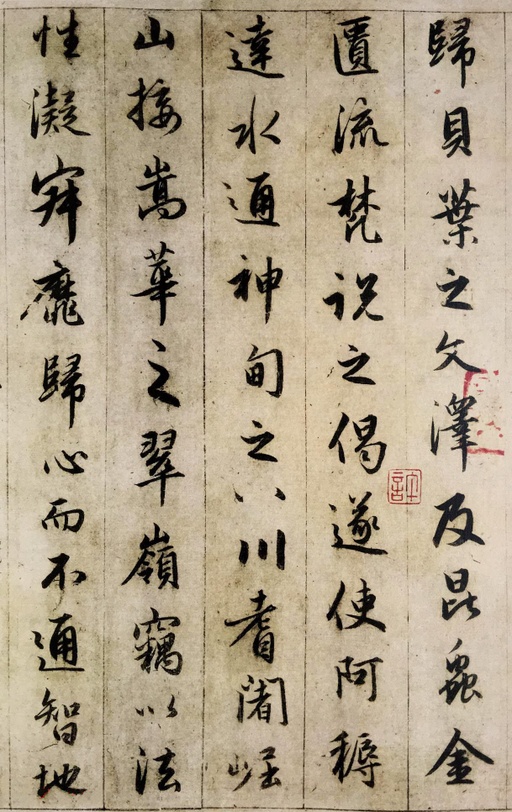 歸貝葉之文澤及昆蟲金
匱流梵説之偈遂使阿耨
達水通神甸之八川耆闍崛
山接嵩華之翠嶺竊以法
性凝寂靡歸心而不通智地
許